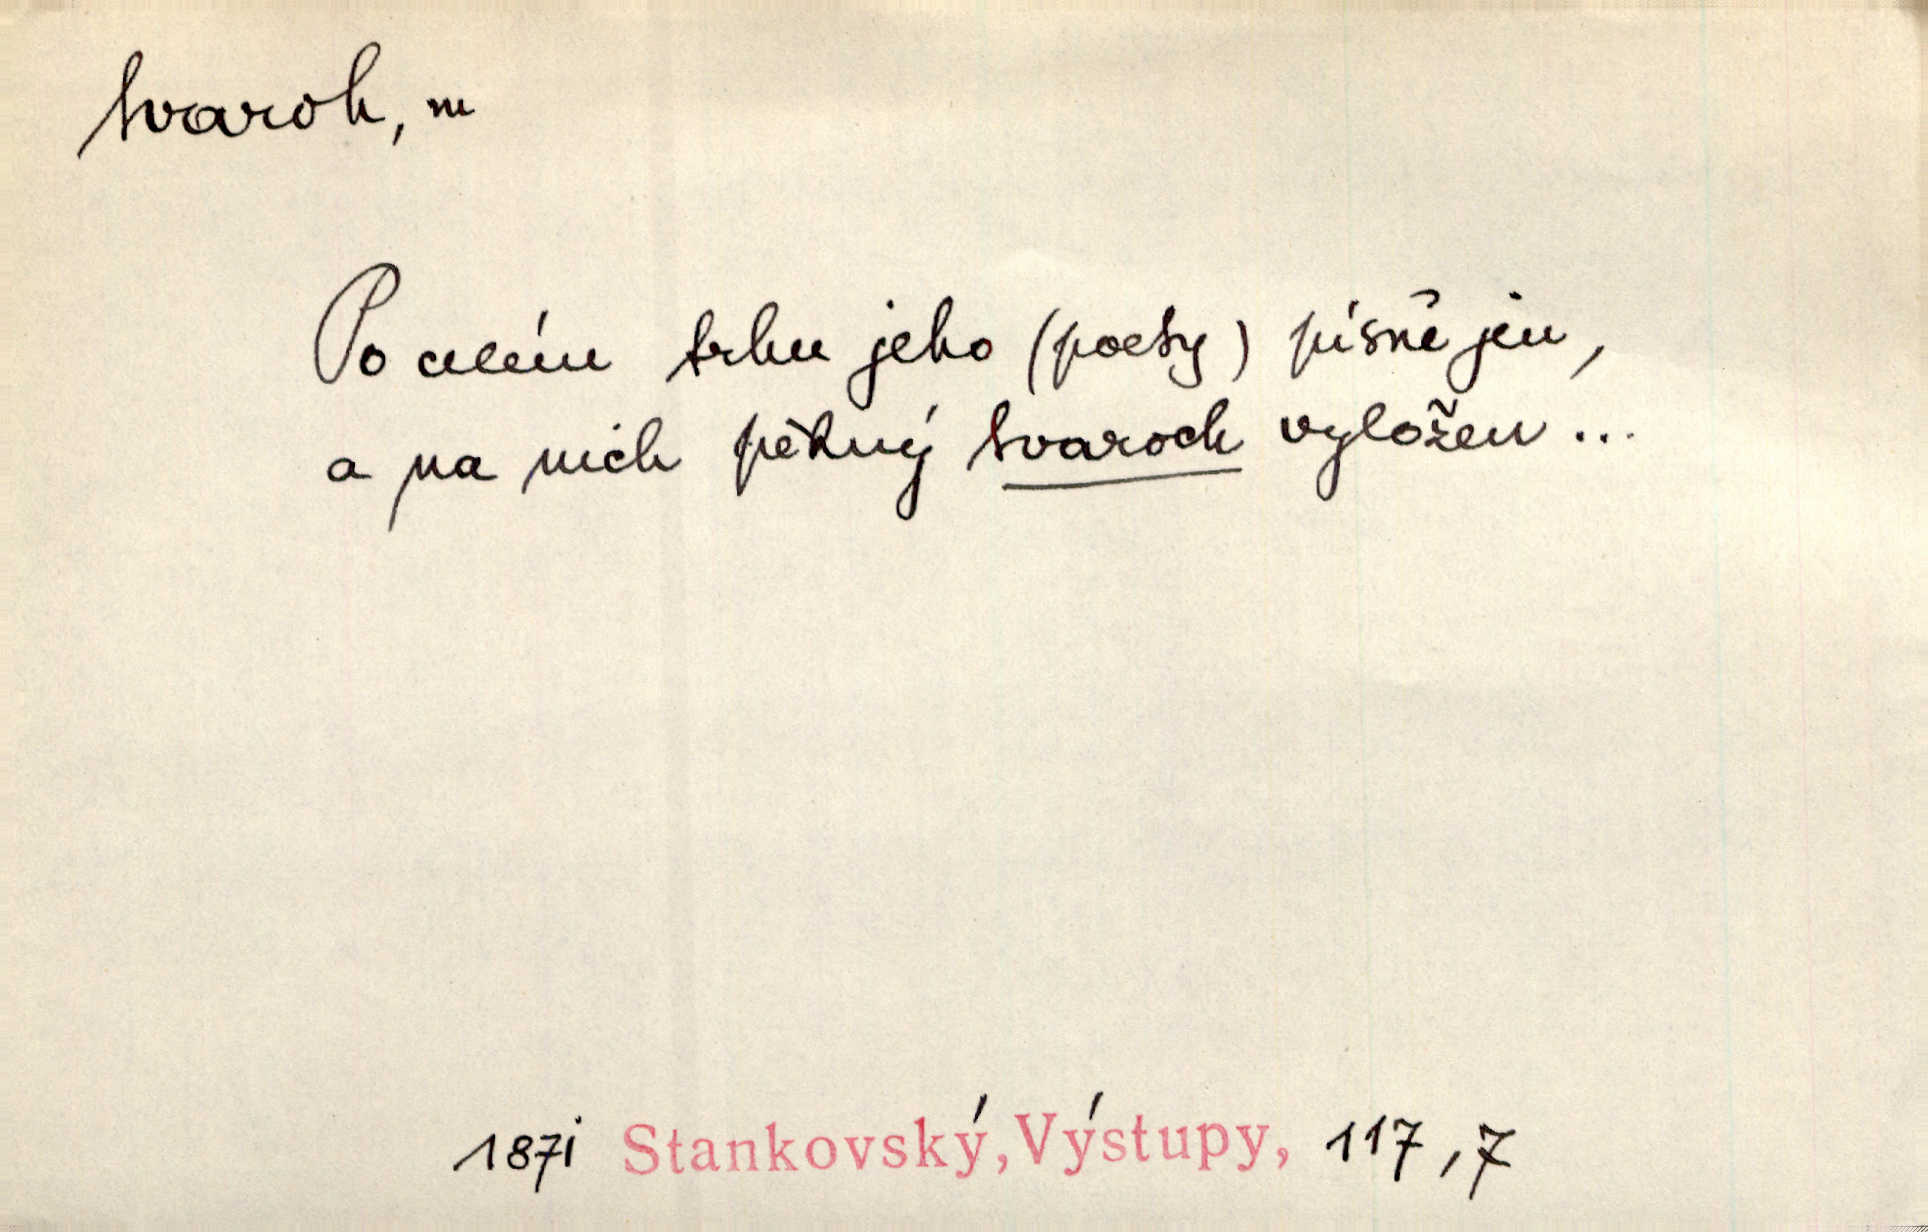 tvaroh, m
Po celém trhu jeho (poety) písně jen,
a na nich pěkný tvaroch vyložen...
1871 Stankovský, Výstupy, 117, 7